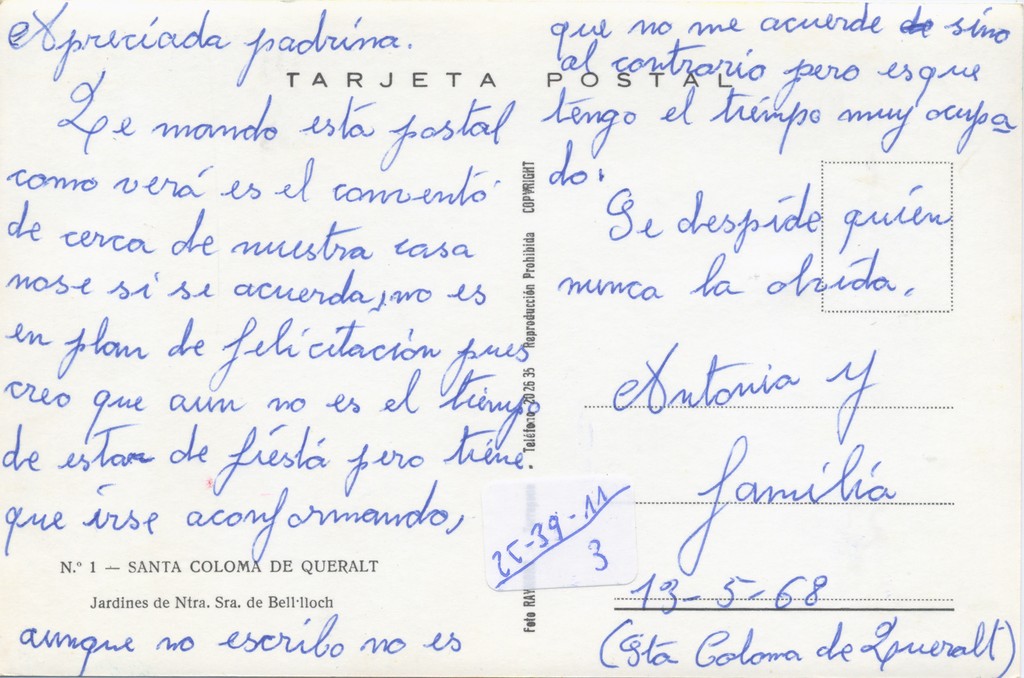 Apreciada padrina.
TARJETA POSTAL
Le mando esta postal
como verá es el conventó
de cerca de nuestra casa
nose si se acuerda, no es
en plan de felicitación pues
creo que aun no es el tiempo
de estar de fiesta pero tiene
que irse aconformando,
N.º 1 — SANTA COLOMA DE QUERALT
Jardines de Ntra. Sra. de Bell·lloch
aunque no escribo no es
que no me acuerde de sino
al contrario pero esque
tengo el tiempo muy ocupa
do.
Se despide quién
nunca la olvida.
Antonia y
familia
13-5-68
(Sta Coloma de Queralt)
Foto RAY
• Teléfono 20 26 35 Reproducción Prohibida COPYRIGHT
25-39-11
3